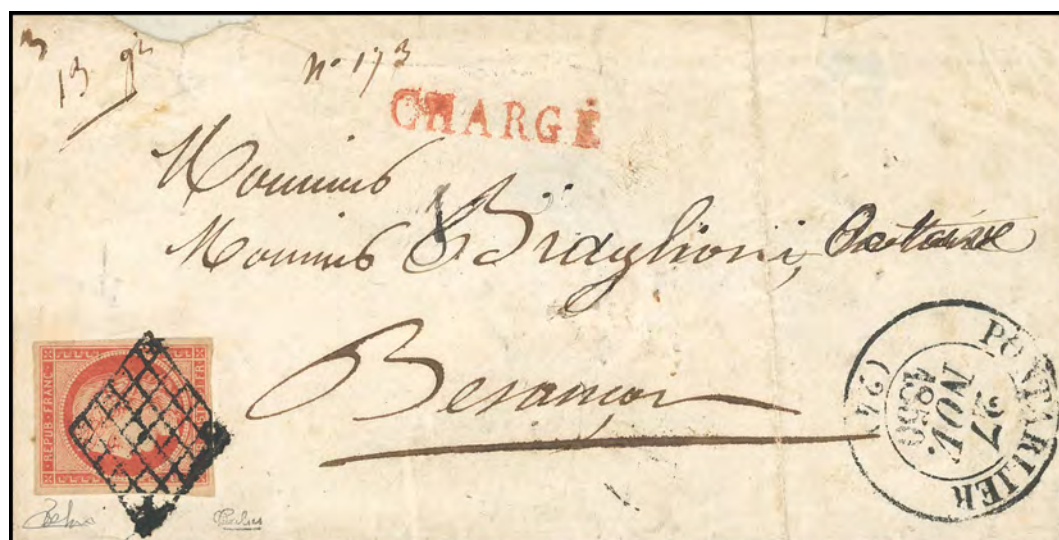 13 gr
n° 173
CHARGÉ
Monsieur
Monsieur Braglioni,
Besançon
REPUB. FRANC.
PONTARLIER
27
NOV.
1850
(24)